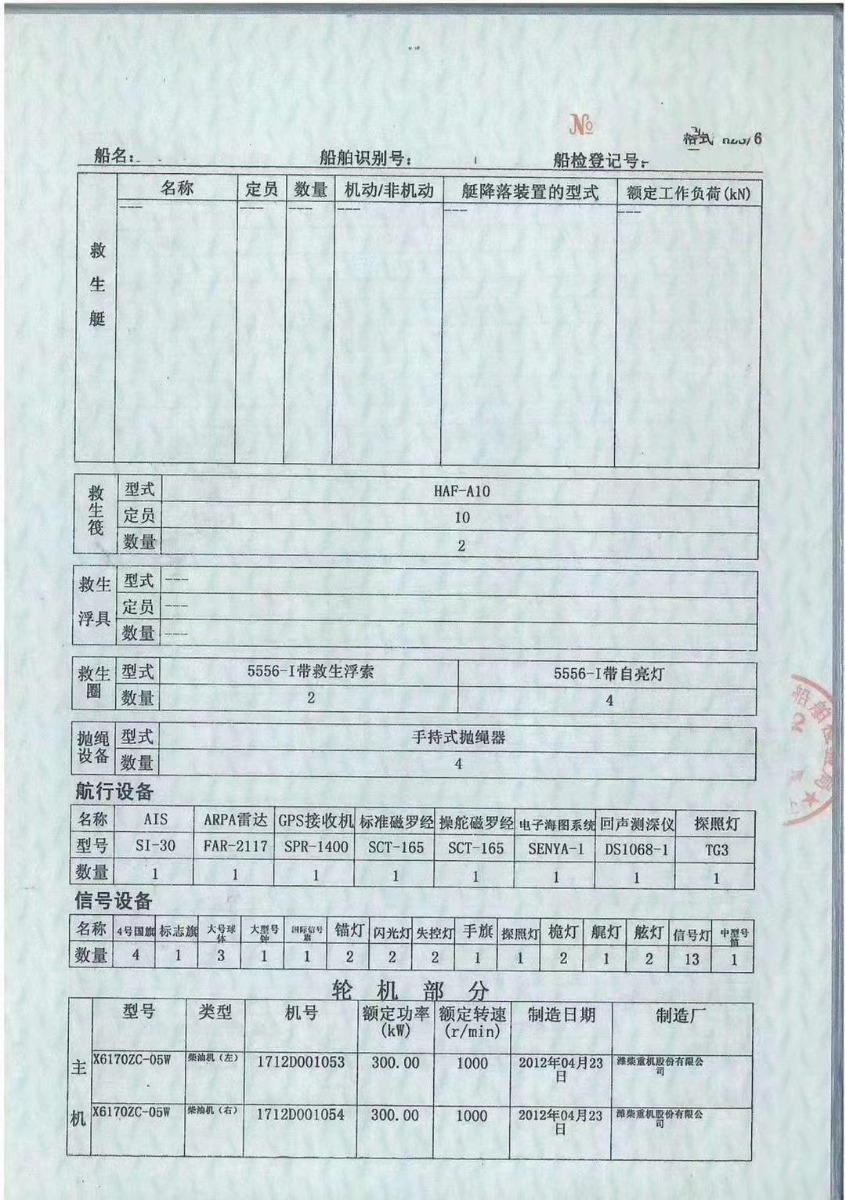 №
格式 /6
船名： 船舶识别号： 船检登记号：
救生艇 名称 定员 数量 机动/非机动 艇降落装置的型式 额定工作负荷(kN)
--- --- --- --- --- ---
救生筏 型式 HAF-A10
定员 10
数量 2
救生浮具 型式 ---
定员 ---
数量 ---
救生圈 型式 5556-I带救生浮索 5556-I带自亮灯
数量 2 4
抛绳设备 型式 手持式抛绳器
数量 4
航行设备
名称 AIS ARPA雷达 GPS接收机 标准磁罗经 操舵磁罗经 电子海图系统 回声测深仪 探照灯
型号 SI-30 FAR-2117 SPR-1400 SCT-165 SCT-165 SENYA-1 DS1068-1 TG3
数量 1 1 1 1 1 1 1 1
信号设备
名称 4号国旗 标志旗 大号球体 大型号钟 国际信号旗 锚灯 闪光灯 失控灯 手旗 探照灯 桅灯 艉灯 舷灯 信号灯 中型号笛
数量 4 1 3 1 1 2 2 2 1 1 2 1 2 13 1
轮机部分
主机 型号 类型 机号 额定功率(kW) 额定转速(r/min) 制造日期 制造厂
X6170ZC-05W 柴油机（左） 1712D001053 300.00 1000 2012年04月23日 潍柴重机股份有限公司
X6170ZC-05W 柴油机（右） 1712D001054 300.00 1000 2012年04月23日 潍柴重机股份有限公司
船舶检